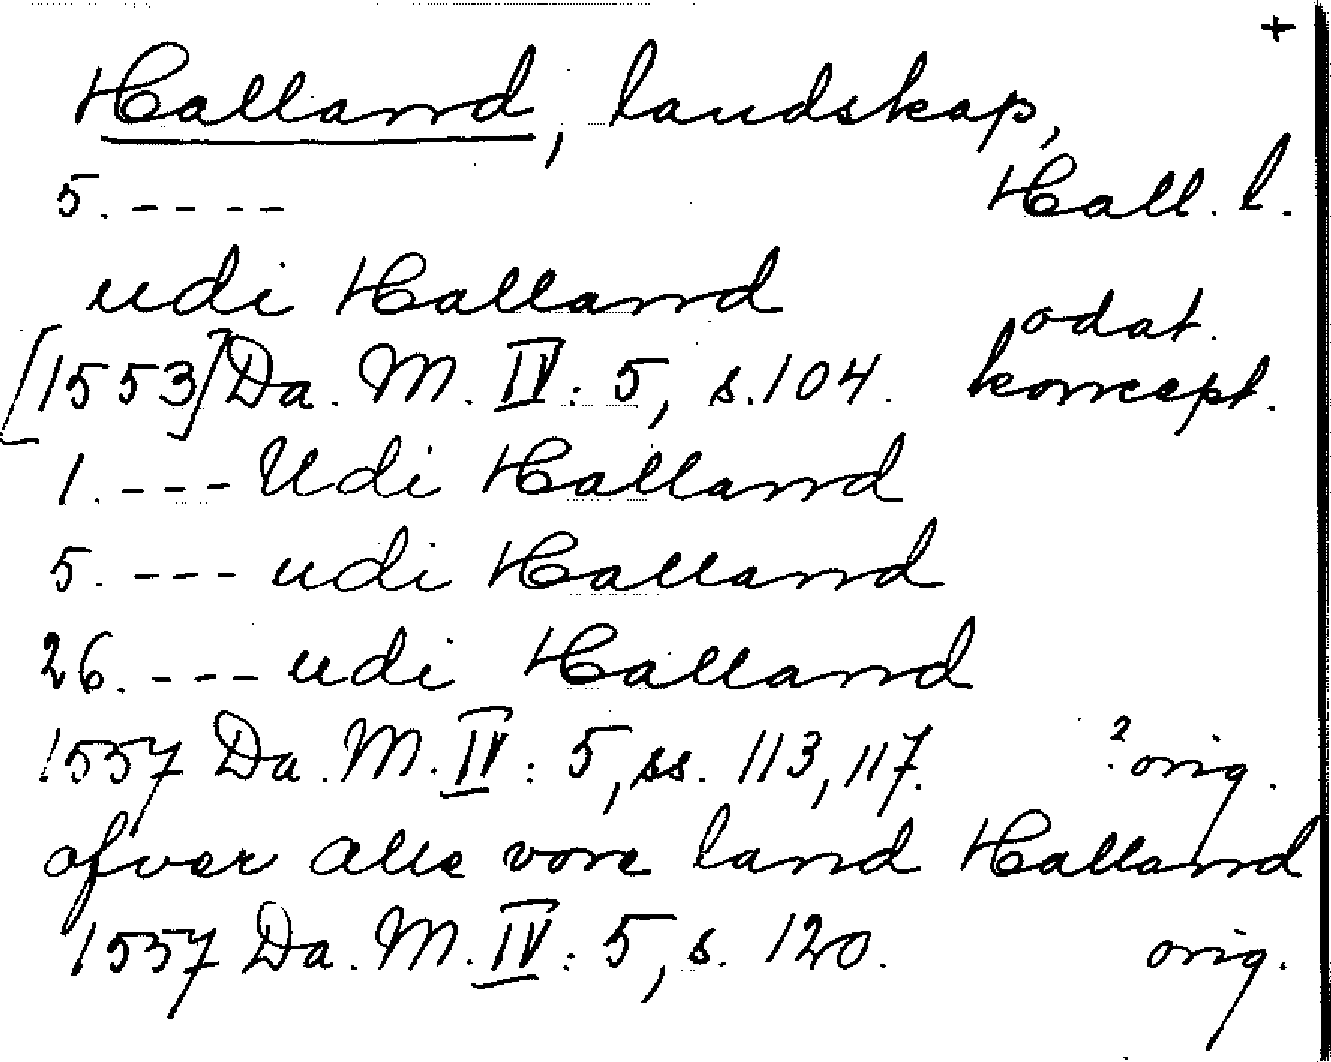 +
Halland, landskap,
5. - - - - Hall. l.
udi Halland odat.
[1553] Da. M. IV: 5, s. 104. koncept.
1. - - - Udi Halland
5. - - - udi Halland
26. - - - udi Halland
1557 Da. M. IV: 5, ss. 113, 117. ? orig.
ofver alle vore land Halland
1557 Da. M. IV: 5, s. 120. orig.